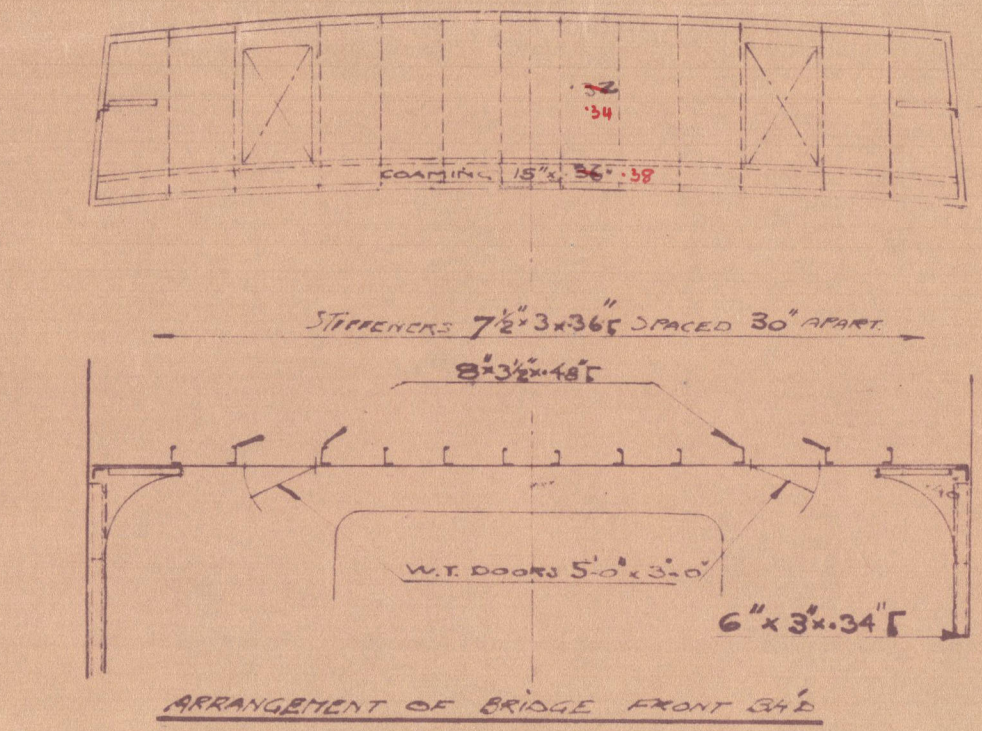 .32
.34
COAMING 15" x .36" .38
STIFFENERS 7½" x 3 x .36 [ SPACED 30" APART.
8" x 3½" x .48" [
W.T. DOORS 5'-0" x 3'-0"
6" x 3" x .34" [
ARRANGEMENT OF BRIDGE FRONT BH'D